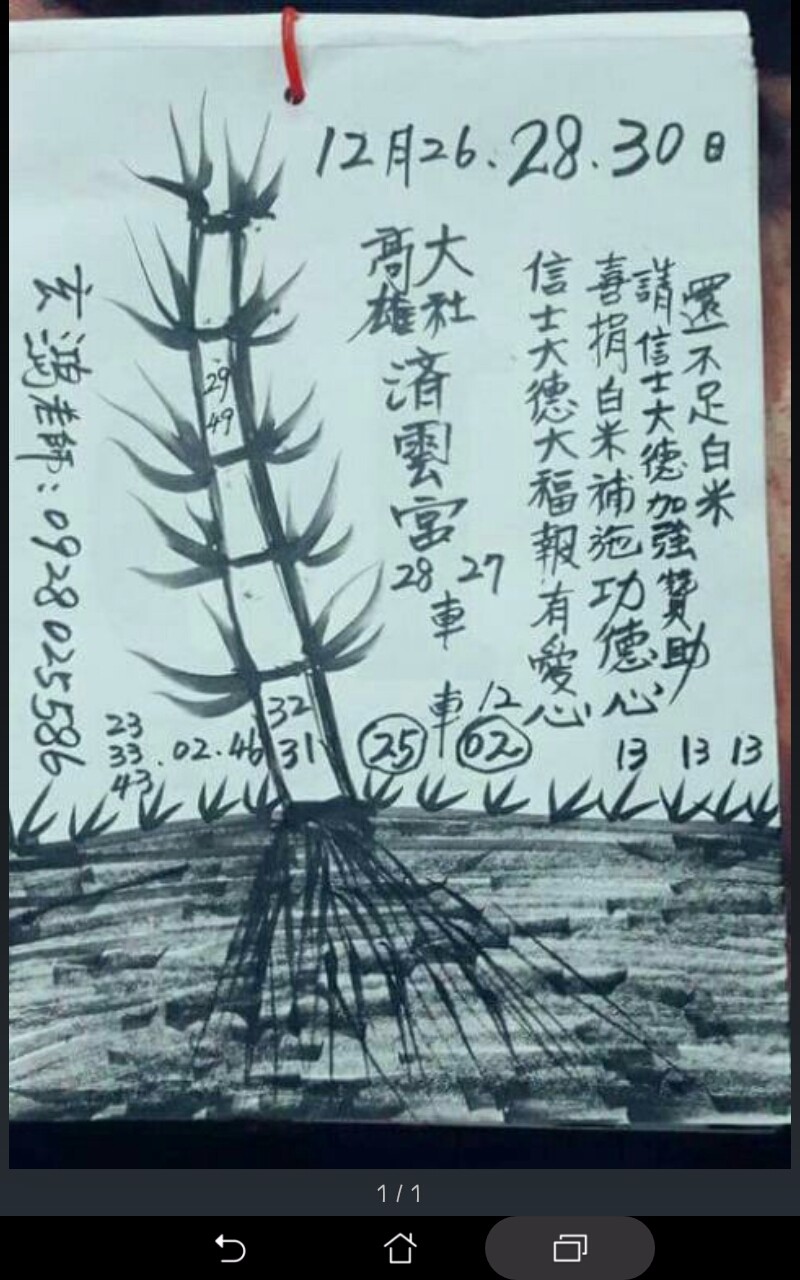 12月26.28.30日
還不足白米
請信士大德加強贊助
喜捐白米補施功德心
信士大德大福報有愛心
大社
高雄
済雲宮
28 27
車
車 12
25 02
13 13 13
29
49
32
31
23
33.02.46
43
玄鴻老師:0928025586
1/1